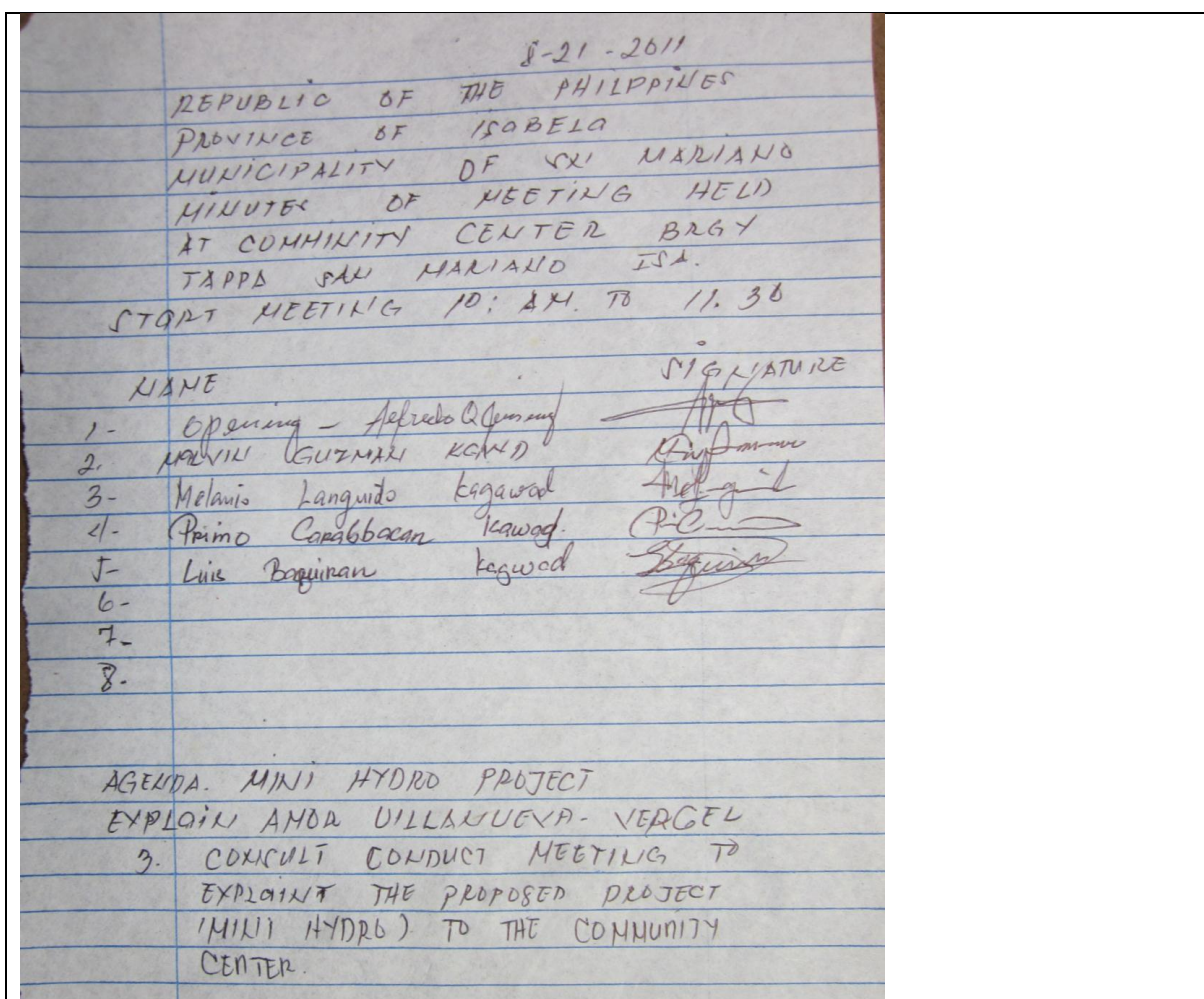 8-21-2011
REPUBLIC OF THE PHILPPINES
PROVINCE OF ISABELA
MUNICIPALITY OF SAN MARIANO
MINUTES OF MEETING HELD
AT COMMINITY CENTER BRGY
TAPPA SAN MARIANO ISA.
START MEETING 10: AM. TO 11.30
NAME SIGNATURE
1- Opening - Alfredo Q
2. MELVIN GUZMAN KGWD
3- Melanio Languido kagawad
4- Primo Carabbacan kawad.
5- Luis Baquiran kagwad
6-
7-
8-
AGENDA. MINI HYDRO PROJECT
EXPLAIN AMOR VILLANUEVA- VERGEL
3. CONSULT CONDUCT MEETING TO
EXPLAINT THE PROPOSED PROJECT
(MINI HYDRO) TO THE COMMUNITY
CENTER.